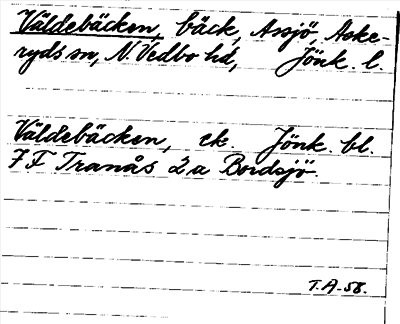 Väldebäcken, bäck, Assjö, Aske-
ryds sn, N. Vedbo hd, Jönk. l.
Väldebäcken, ek. Jönk. bl.
7 F Tranås 2 a Bordsjö.
T.A-58.